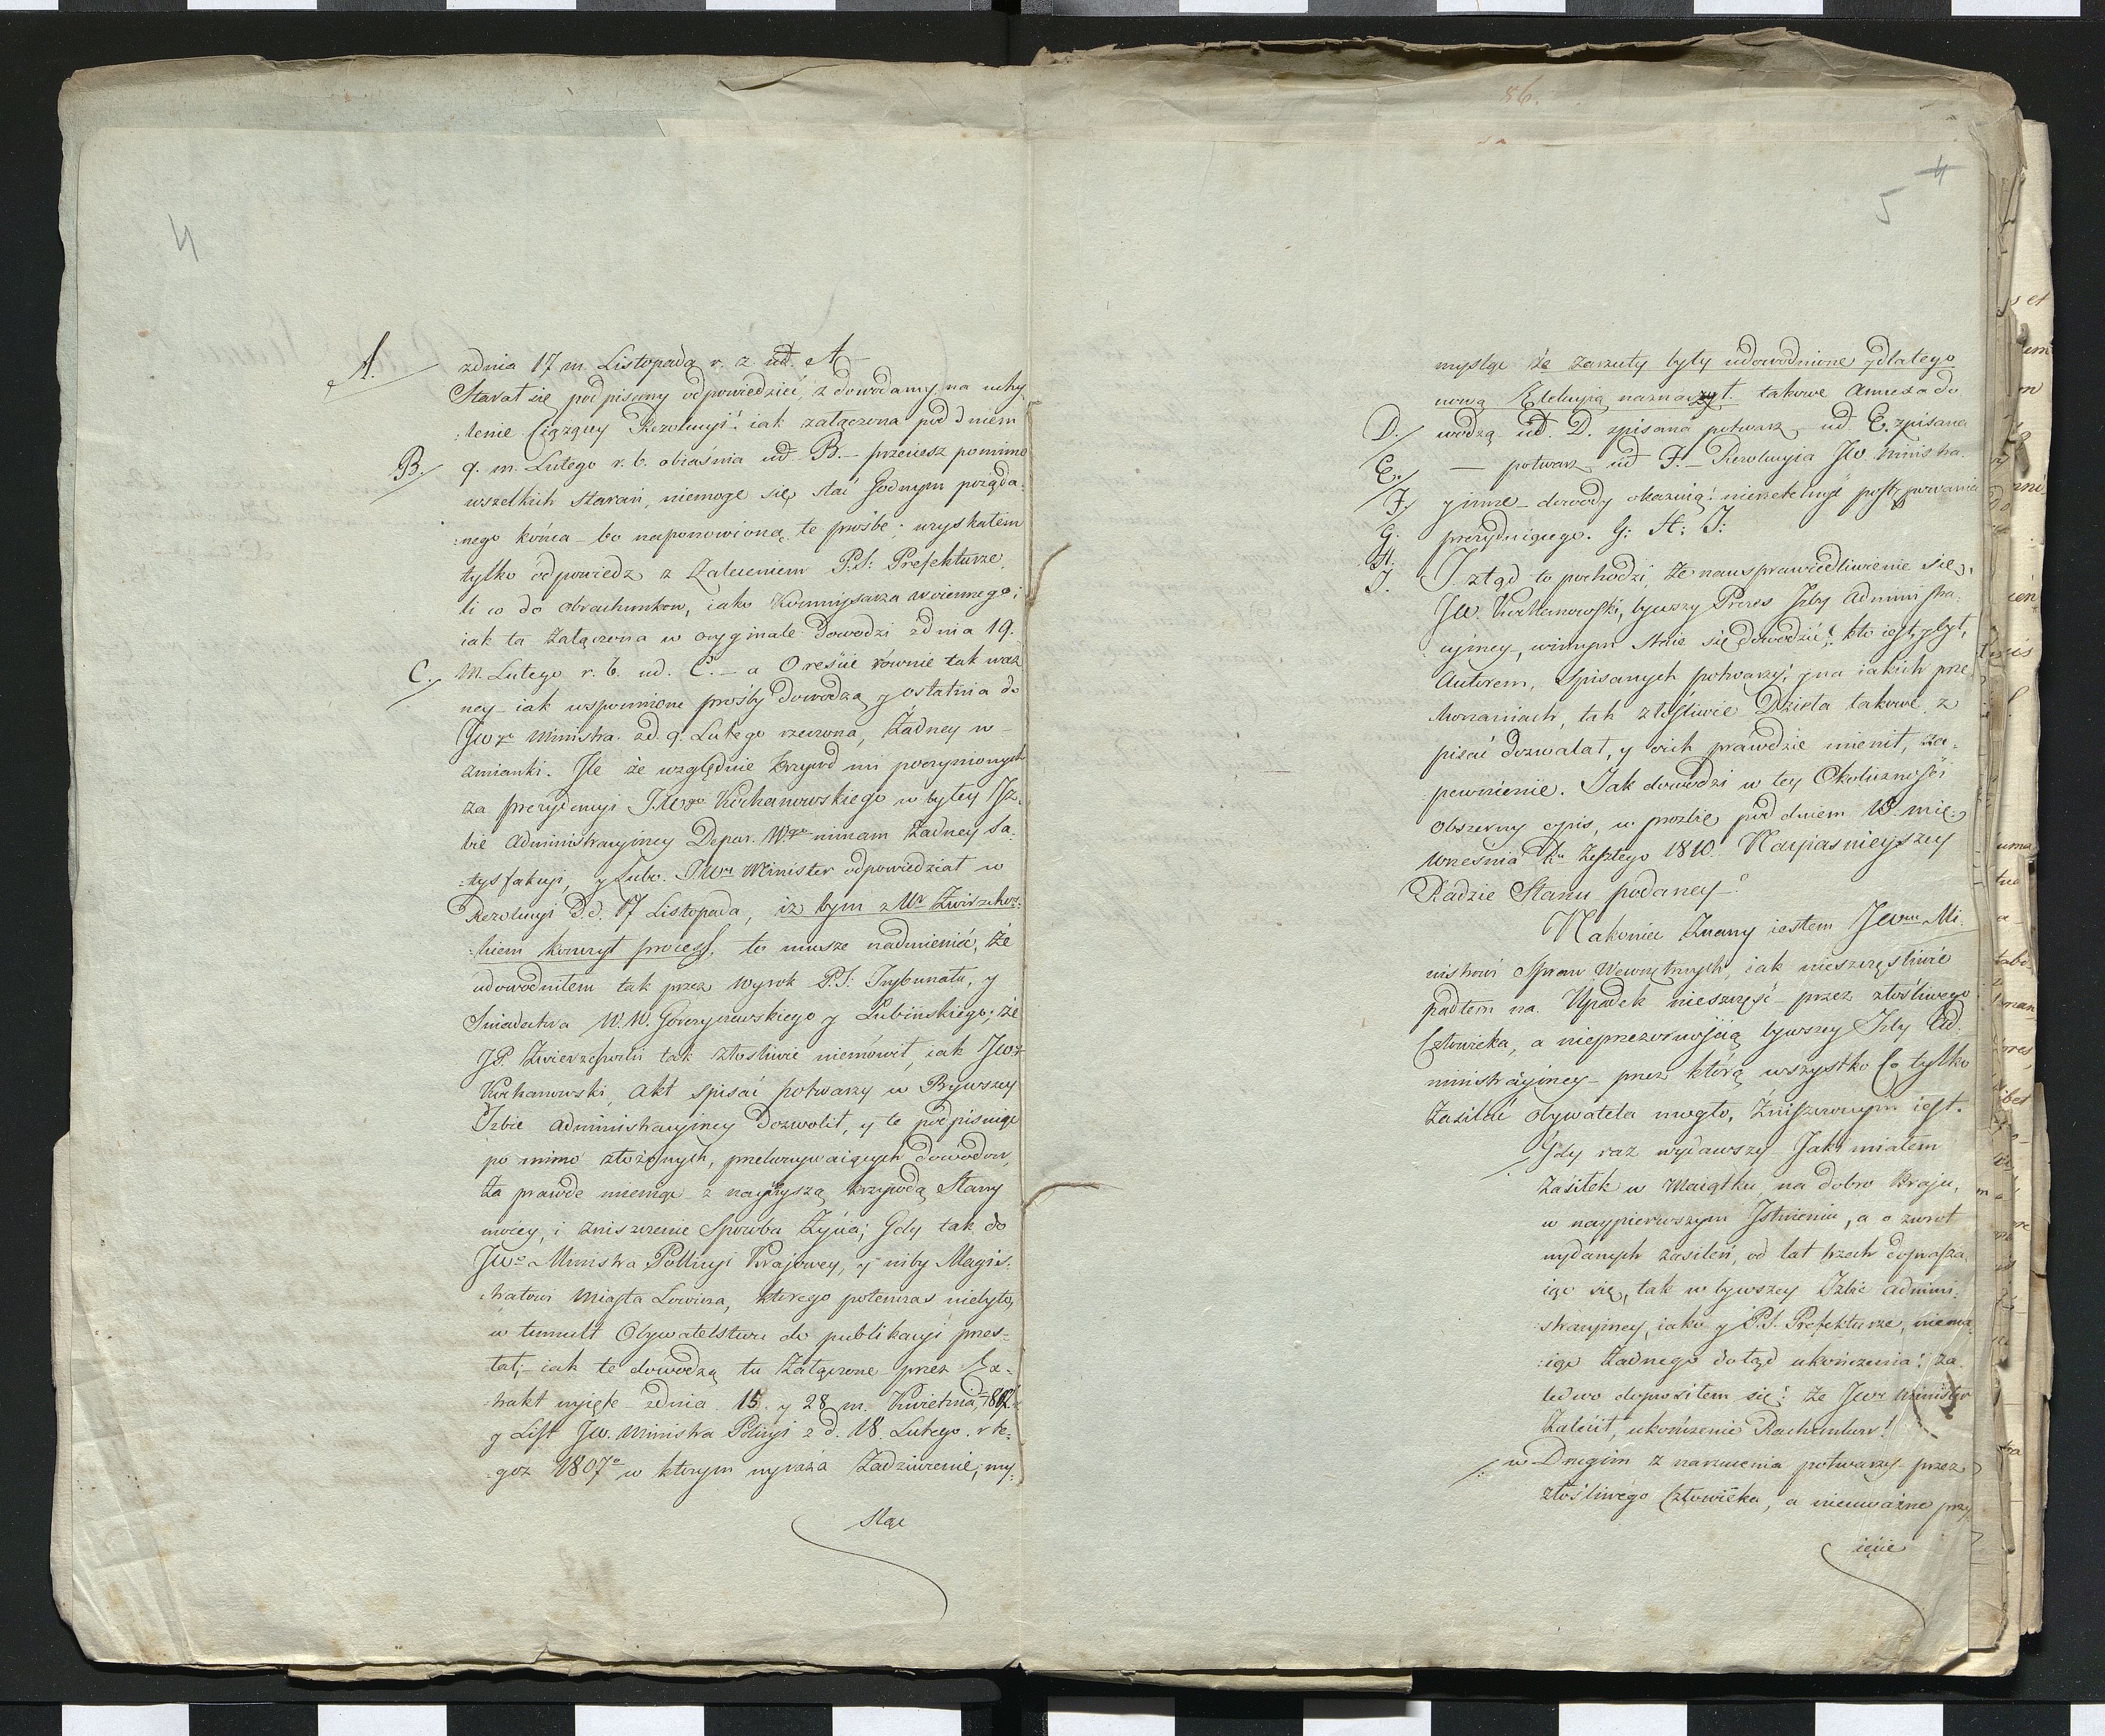 4
A. zdnia 17 m. Listopada r. z. ud. A –
Starał się podpisany odpowiedzieć, z dowodamy, na uchy
:lenie Ciążący Rezolucyi: iak załączona pod dniem
B. 9. m. Lutego r. b. obiaśnia ud B. – przeciesz pomimo
wszelkich starań, niemoge się stać Godnym pożąda:
:nego końca – bo na ponowioną te prośbe, uzyskałem
tylko odpowiedz z Zaleceniem P.S: Prefekturze,
li co do obrachunkow, iako Kommysarza woiennego;
iak ta Załączona w oryginale Dowodzi zdnia 19.
C. m. Lutego r. b. ud. C. – a Oreście równie tak waż
ney – iak wspomnione prośby Dowodzą y ostatnia do
JWgo Ministra zd. 9. Lutego rzeczona, Żadney w –
zmianki. Ile że względnie krzywd mi poczynionych
za prezydencyi JWgo Kochanowskiego w byłey Iz:
bie Administracyiney Depar. Wgo nimam Żadney Sa:
:tysfakcyi, y Lubo. JWny Minister odpowiedział w
Rezolucyi D.d. 17 Listopada, iż bym z Mr Zwirzchow:
:kiem kończył process, to musze nadmienić, Że
udowodniłem tak przez wyrok P.S: Trybunału, y
Świadectwa W.W. Gorczyczewskiego y Lubińskiego; Że
JP. Zwierzchowski tak złosliwie niemówił, iak JWny
Kochanowski, Akt spisać potwarzy w Bywszey
Izbie Administracyiney Dozwolił, y te podpisuiąc
po mimo złożonych, przekonywaiących dowodow,
za prawde mieniąc z naywyszą krzywdą Sławy
moiey, i zniszczenie Sposobu Życia; Gdy tak do
JWo Ministra Policyi Krajowey, y niby Magis:
:tratowi Miasta Lowicza, ktorego potenczas niebyło,
w tumult Obywatelstwu do publikacyi przes:
łał; – iak te dowodzą tu Załączone przez Ex:
:trakt wyięte zdnia 15. y 28 m. Kwietnia, 1807.
y List JW. Ministra Policyi z d. 18. Lutego. r te:
:goż 1807o w ktorym wyraża Zadziwienie, my:
sląc
86.
4
5
mysląc że zarzuty były udowodnione y dlatego
nową Elekcyią naznaczył. takowe Annexa do
D. wodzą ud. D. spisana potwarz – ud. E. zpisana
E. – potwarz ud F. – Rezolucyia JW. Ministra.
F. y inne – dowody okazuią: nierzetelność postępowania
G. prezyduiącego. G: H: I:
H.
I. I ztąd to pochodzi, Że nausprawiedliwienie się,
JW. Kochanowski, bywszy Prezes Izby Administra:
:cyiney, winnym stać się dowodzić: kto iest, y był,
Autorem, Spisanych potwarzy, y na iakich prze
konaniach, tak złosliwie Dzieła takowe, z
pisać dozwalał, y orich prawdzie mienił, za:
pewnienie. Jak dowodzi w tey Okoliczności
obszerny opis, w prozbie pod dniem 10. mię:
Wrzesnia Ru Zeszłego 1810. Nayiasnieyszey
Radzie Stanu podaney –
Nakoniec Znany iestem JWmu Mi:
nistrowi Spraw Wewnętrznych, iak nieszczęśliwie
padłem na Upadek nieszczęść – przez złośliwego
Człowieka, a nieprzezornością bywszey Izby Ad:
ministracyiney – przez którą wszystko Co tylko
Zasilać obywatela mogło, Zniszczonym iest.
Gdy raz wydawszy Jaki miałem
Zasiłek w Maiątku, na dobro Kraju,
w naypierwszym Istnieniu, a o zwrot
wydanych zasileń, od lat trzech dopraszai
iąc się, tak w bywszey Izbie admini:
:stracyiney, iako y P.S. Prefekturze, niema
iąc Żadnego dotąd ukończenia: Za
ledwo doprosiłem się: Że JWny Minister
Zalecił, ukończenie Rachunkow!
w Drugim z narzucenia potwarzy – przez
złośliwego Człowieka, a nieuważne przy
ięcie